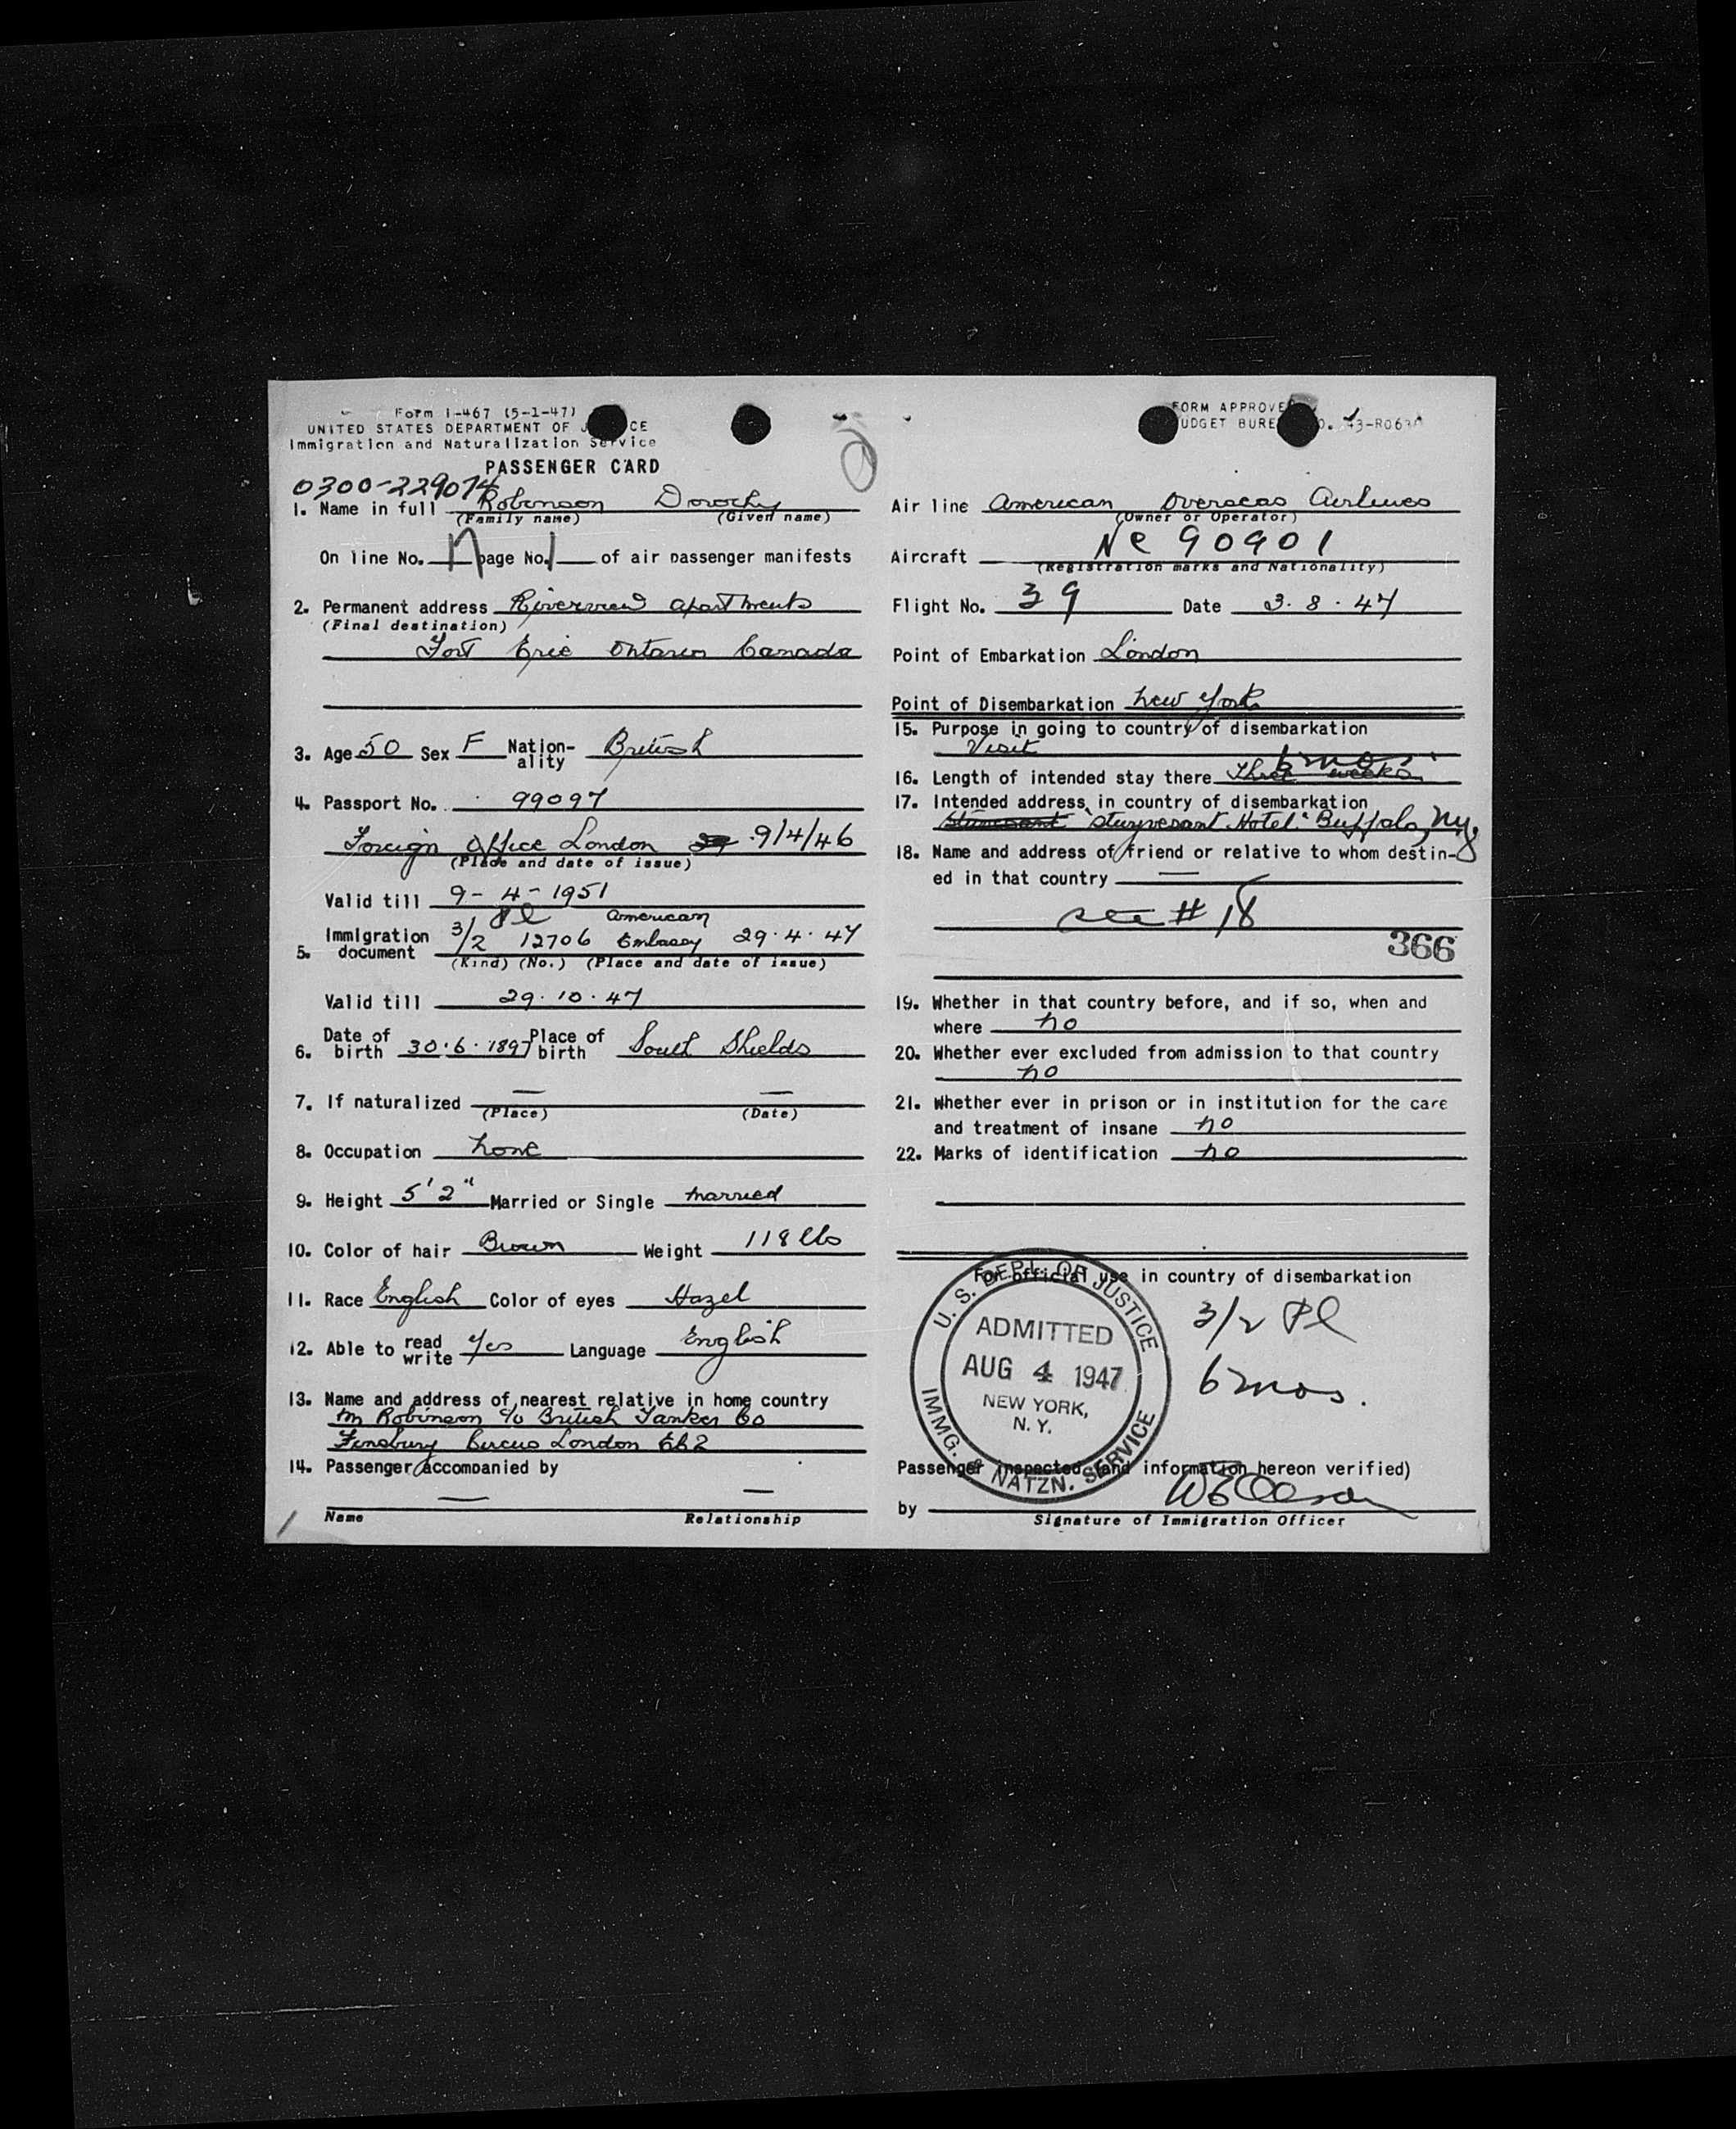 Form I-467 (5-1-47)
UNITED STATES DEPARTMENT OF J CE
Immigration and Naturalization Service
PASSENGER CARD
0300-229074
1. Name in full Robinson Dorothy
(Family name) (Given name)
On line No. page No. 1 of air passenger manifests
2. Permanent address Riverview apartments
(Final destination)
Fort Erie Ontario Canada
3. Age 50 Sex F Nation-
ality British
4. Passport No. 99097
Foreign Office London 9/4/46
(Place and date of issue)
Valid till 9-4-1951
Pl American
5. Immigration document 3/2 12706 Embassy 29.4.47
(Kind) (No.) (Place and date of issue)
Valid till 29.10.47
6. Date of birth 30.6.1897 Place of birth South Shields
7. If naturalized — —
(Place) (Date)
8. Occupation none
9. Height 5'2" Married or Single married
10. Color of hair Brown Weight 118 lbs
11. Race English Color of eyes Hazel
12. Able to read write Yes Language English
13. Name and address of nearest relative in home country
M Robinson c/o British Tanker Co
Finsbury Circus London EC2
14. Passenger accompanied by
— —
Name Relationship
FORM APPROVE
UDGET BURE O. 43-R063
Air line American Overseas Airlines
(Owner or Operator)
Aircraft NC 90901
(Registration marks and Nationality)
Flight No. 39 Date 3.8.47
Point of Embarkation London
Point of Disembarkation New York
15. Purpose in going to country of disembarkation
Visit
6 mos.
16. Length of intended stay there Three weeks
17. Intended address in country of disembarkation
Stuyvesant "Stuyvesant Hotel" Buffalo, N.Y.
18. Name and address of friend or relative to whom destin-
ed in that country —
see # 18
366
19. Whether in that country before, and if so, when and
where no
20. Whether ever excluded from admission to that country
no
21. Whether ever in prison or in institution for the care
and treatment of insane no
22. Marks of identification no
For official use in country of disembarkation
U. S. DEPT. OF JUSTICE
ADMITTED
AUG 4 1947
NEW YORK,
N. Y.
IMMG. & NATZN. SERVICE
3/2 Pl
6 mos.
Passenger inspected (and information hereon verified)
by
Signature of Immigration Officer